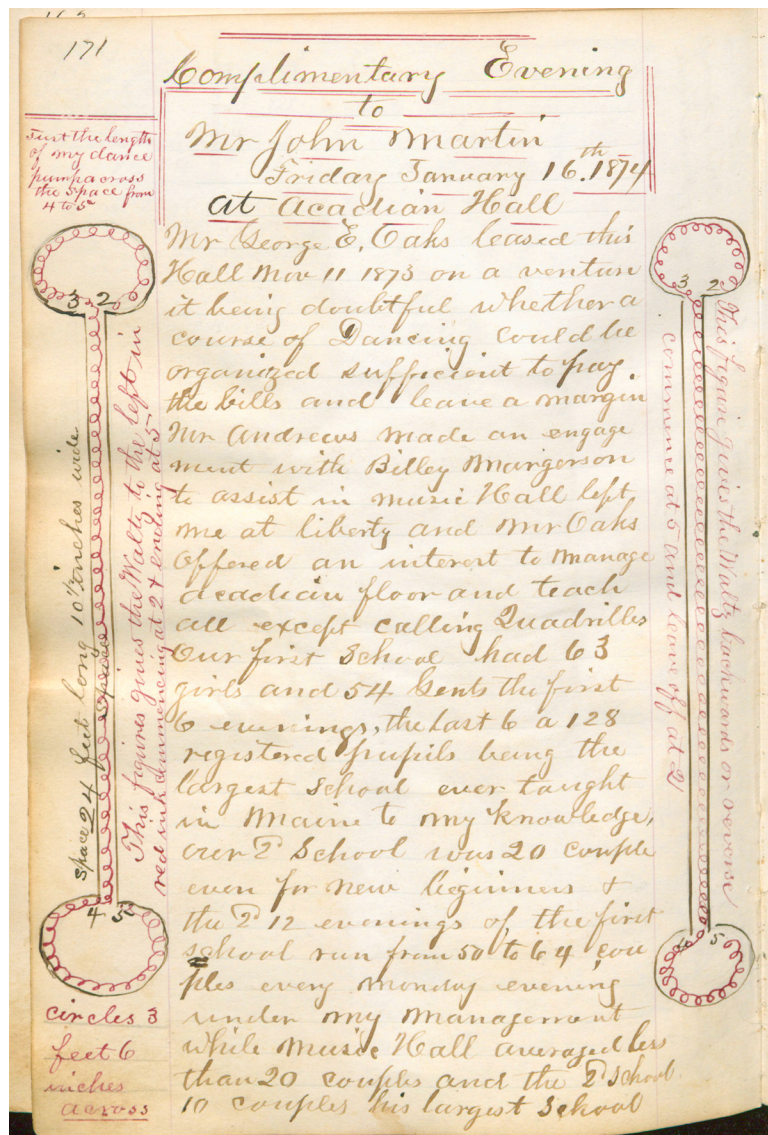 171
Complimentary Evening
to
Mr John Martin
Friday January 16.th 1874
at Acadian Hall
Just the length
of my dance
pump across
the space from
4 to 5
Mr George E, Oaks leased this
Hall Nov 11 1873 on a venture
it being doubtful whether a
course of Dancing could be
organized sufficient to pay.
the bills and leave a margin
Mr Andrews made an engage
ment with Billey Margerson
to assist in music Hall left
me at liberty and Mr Oaks
offered an interest to manage
Acadian floor and teach
all except calling Quadrilles
Our first School had 63
girls and 54 Gents the first
6 evenings, the last 6 a 128
registered pupils being the
largest School ever taught
in Maine to my knowledge,
our 2d School was 20 couple
even for new beginners &
the 2d 12 evenings of the first
school run from 50 to 64 cou
ples every monday evening
under my management
while Music Hall averaged less
than 20 couples and the 2d School
10 couples his largest School
3 2
space 24 feet long 10 1/2 inches wide
space
This figures gives the Waltz to the left in
red ink commencing at 2 & ending at 5
4 5
circles 3
feet 6
inches
across
3 2
This figure gives the Waltz backwards or reverse
commence at 5 and leave off at 2
4 5